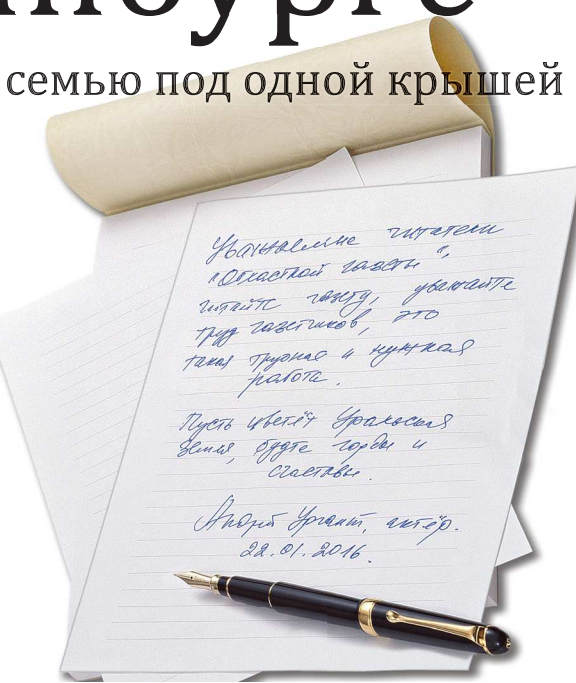 нбурге
семью под одной крышей
Уважаемые читатели
"Областной газеты",
читайте газету, уважайте
труд газетчиков, это
такая трудная и нужная
работа.
Пусть цветёт Уральская
земля, будте горды и
счастливы.
Андрей Ургант, актёр.
22.01.2016.